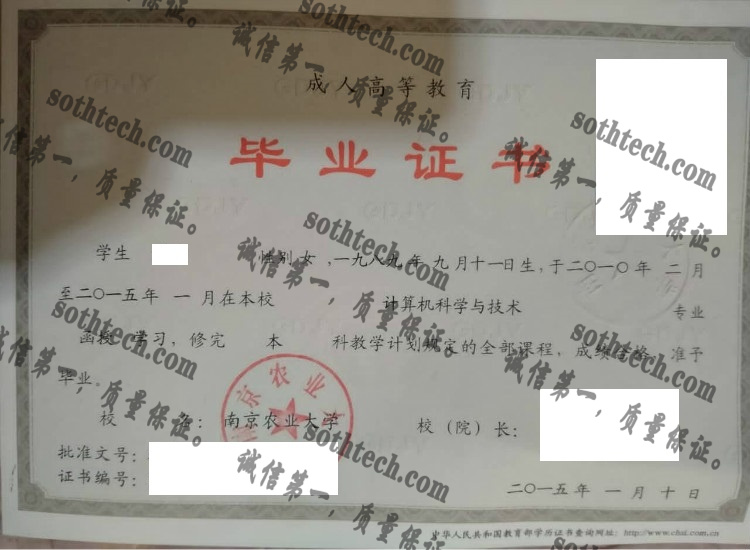 成人高等教育
毕业证书
学生 性别 女 ,一九八九年 九 月十一日生,于二〇一〇年 二 月
至二〇一五年 一 月在本校 计算机科学与技术 专业
函授 学习,修完 本 科教学计划规定的全部课程,成绩合格,准予
毕业。
校 名: 南京农业大学 校(院)长:
批准文号:
证书编号:
二〇一五年 一 月 十 日
中华人民共和国教育部学历证书查询网址: http://www.chsi.com.cn
南京农业大学
sothtech.com
诚信第一,质量保证。
sothtech.com
诚信第一,质量保证。
sothtech.com
诚信第一,质量保证。
sothtech.com
诚信第一,质量保证。
sothtech.com
诚信第一,质量保证。
sothtech.com
诚信第一,质量保证。
sothtech.com
诚信第一,质量保证。
sothtech.com
诚信第一,质量保证。